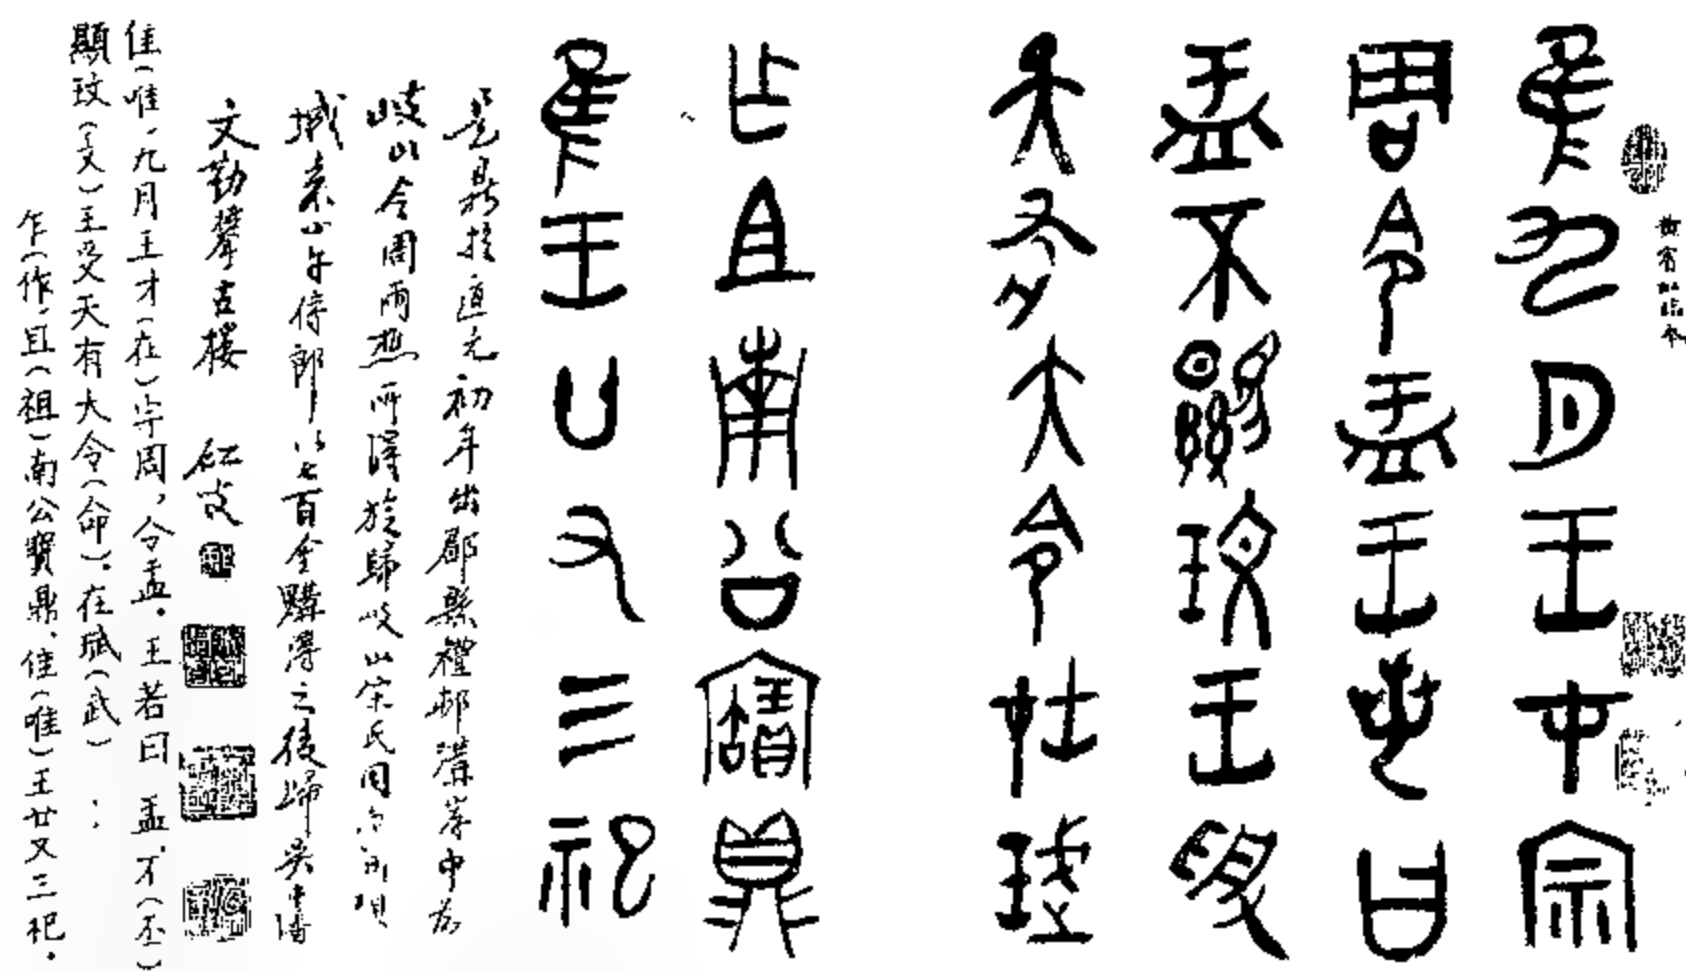 黄賓虹臨本
隹九月王才宗
周令盂王若曰
盂不顯玟王受
天有大令在珷
乍且南公寶鼎
隹王廿又三祀
是鼎於道光初年出郿縣禮邨溝岸中為
岐山令周雨樵所得旋歸岐山宋氏同治間項
城袁小午侍郎以七百金購得之後歸吳中潘
文勤攀古樓 虹叟
隹(唯)九月王才(在)宗周，令盂。王若曰 盂，不(丕)
顯玟(文)王受天有大令(命)。在珷(武)……
乍(作)且(祖)南公寶鼎，隹(唯)王廿又三祀。